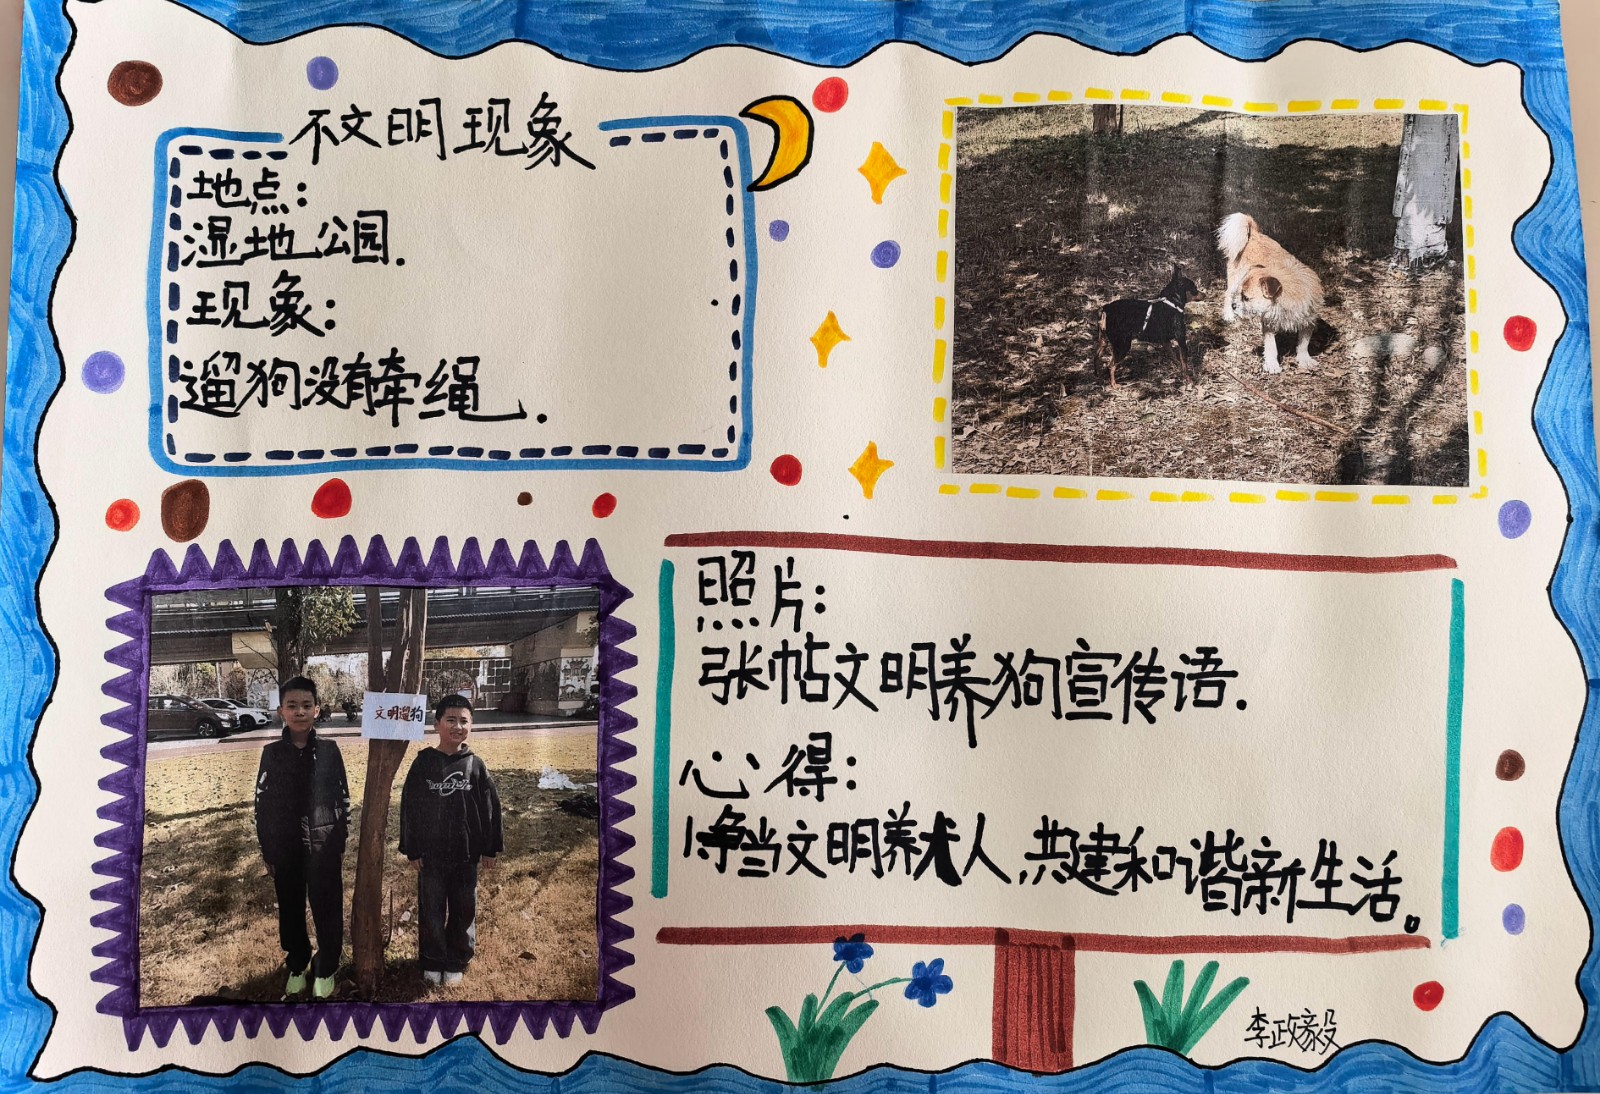 不文明现象
地点:
湿地公园.
现象:
遛狗没有牵绳.
文明遛狗
照片:
张帖文明养狗宣传语.
心得:
争当文明养犬人,共建和谐新生活。
李政毅